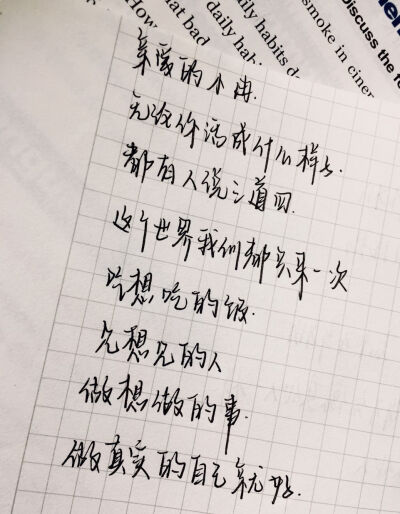 How
bad
daily
daily habits
smoke in
Discuss the
亲爱的小
无论你活成什么样子.
都有人说三道四.
这个世界我们都只来一次
吃想吃的饭.
见想见的人
做想做的事.
做真实的自己就好.